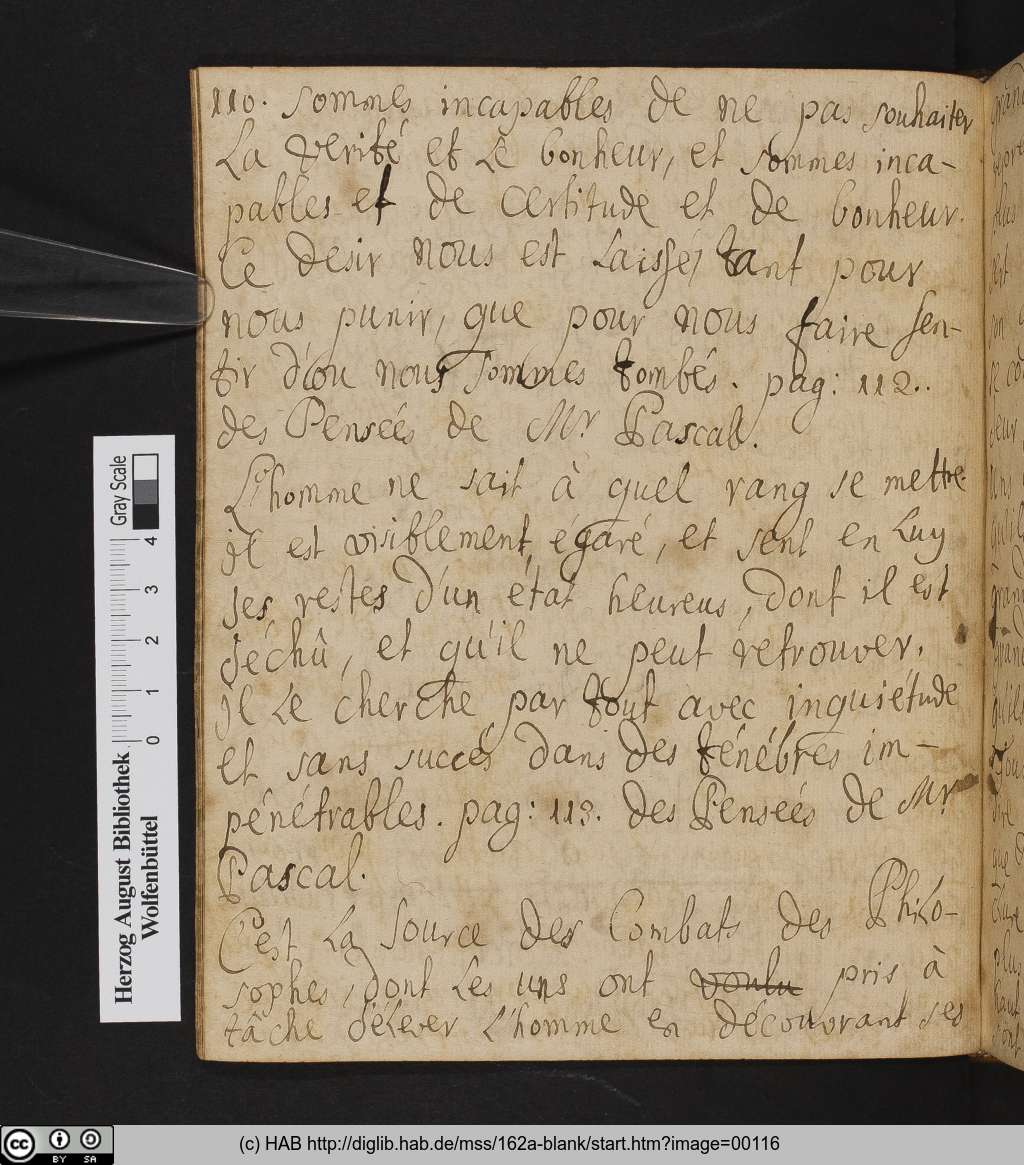 110. sommes incapables de ne pas souhaiter
La verité et Le bonheur, et sommes inca-
pables et de certitude et de bonheur.
Ce desir nous est Laissé, tant pour
nous punir, que pour nous faire sen-
tir d'ou nous sommes tombés. pag: 112..
des Penseés de Mr Pascal.
L'homme ne sait à quel rang se mettre.
il est visiblement égaré, et sent en Luy
ses restes d'un état heureus, dont il est
déchû, et qu'il ne peut retrouver.
il Le cherche par tout avec inquiétude
et sans succés dans des ténébres im-
pénétrables. pag: 113. des Penseés de Mr
Pascal.
C'est La source des Combats des Philo-
sophes, dont Les uns ont voulu pris à
tâche d'éLever L'homme en découvrant ses
Herzog August Bibliothek
Wolfenbüttel
Gray Scale
0 1 2 3 4
cc BY SA
(c) HAB http://diglib.hab.de/mss/162a-blank/start.htm?image=00116